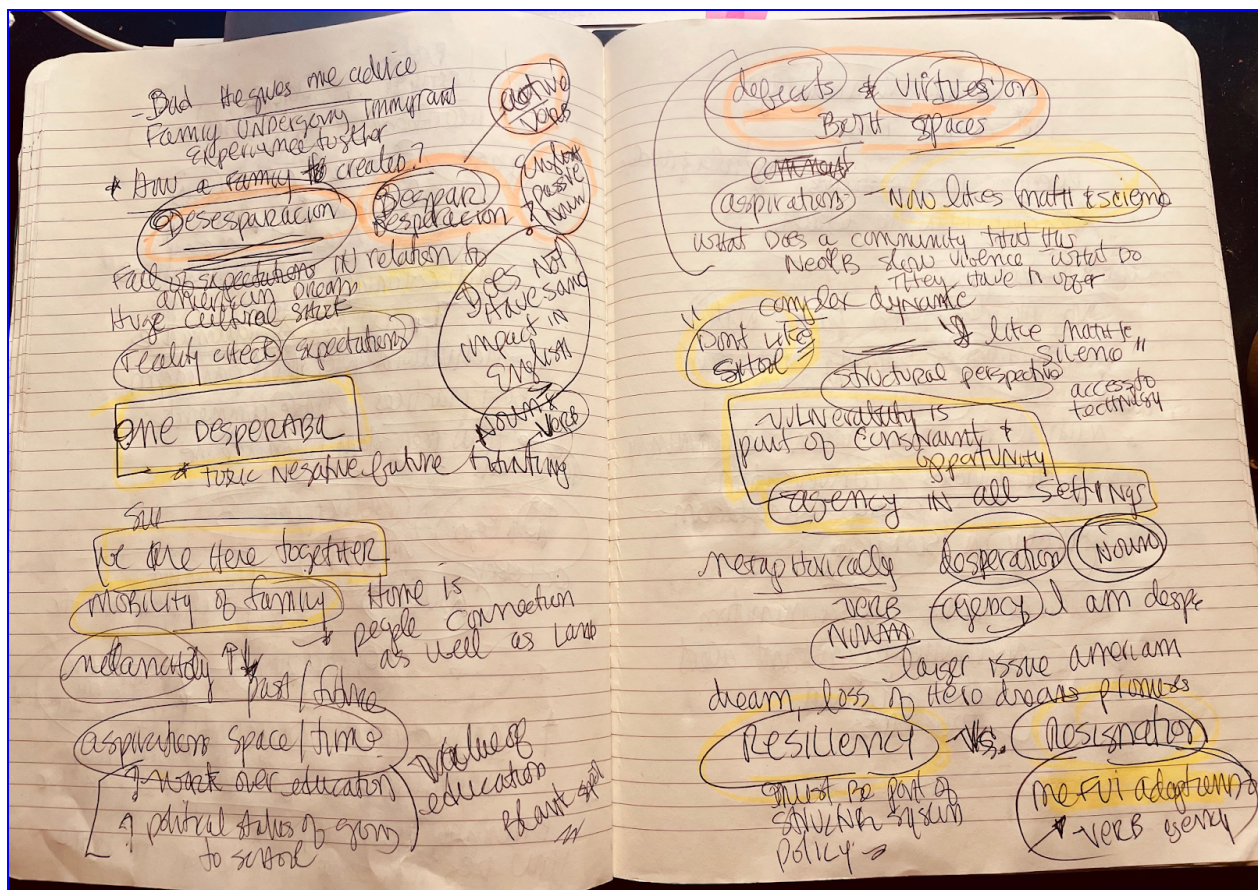 - Bad He gives me advice
Family undergoing immigrant
experience together
* How a family is created?
active
verb
Desesparacion
Despair
Desperacion
passive
noun
Fail of expectations in relation to
american dream
Huge cultural shock
reality check
expectations
Does Not
Have same
impact in
English
Noun &
Verb
ME DESPERABA
* toxic negative future
still
We are Here together
Mobility of family
Home is
people connection
as well as Land
melancholy ↑↓
past/future
aspirations space/time
↑ work over education
↑ political status of going
to school
Value of
education
defects & virtues on
Both spaces
aspirations - Now likes math & science
What does a community that has
slow violence what do
They have to offer
complex dynamic
"Dont like
school"
I like math &
science"
structural perspective
access to
technology
- vulnerability is
part of constraint &
opportunity
agency in all settings
metaphorically desperation Noun
verb agency I am despe
Noun
larger issue american
dream, loss of Hero dreams promises
Resiliency vs. Resignation
must be part of
system
policy
me fui
verb agency